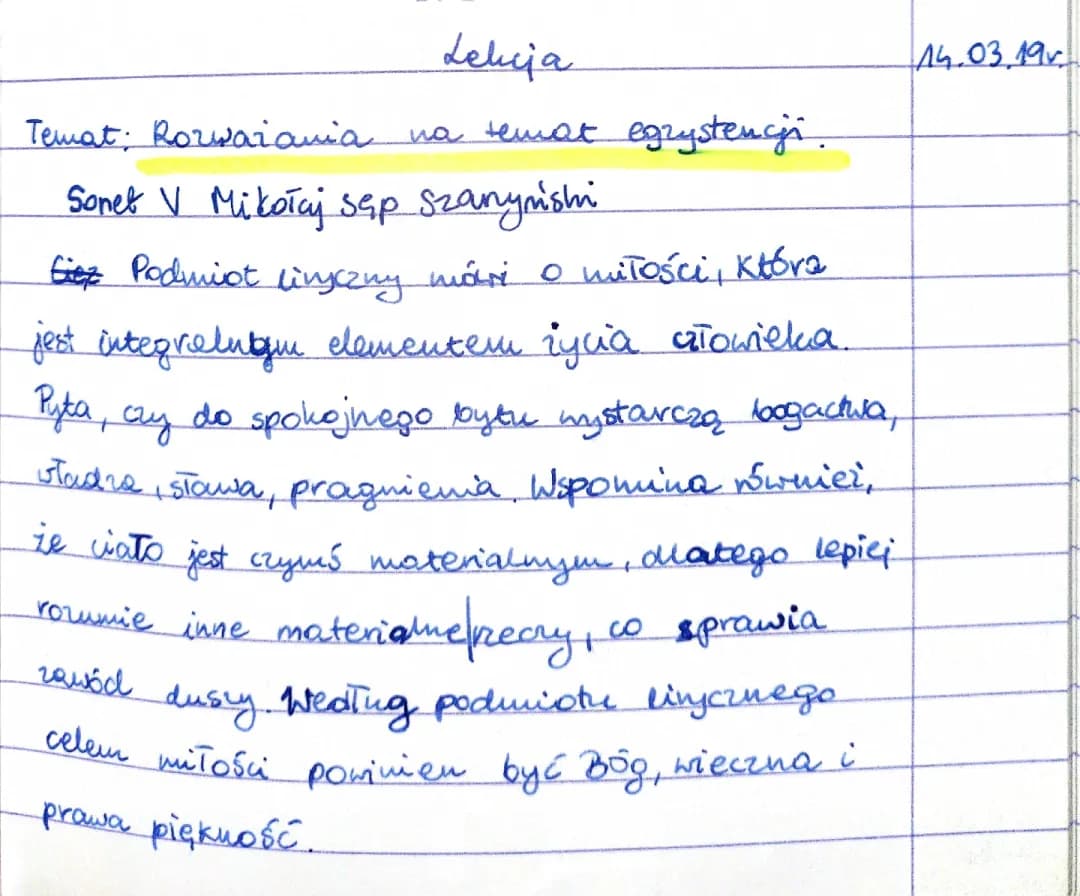 Lekcja 14.03.19r.
Temat: Rozważania na temat egzystencji.
Sonet V Mikołaj sęp Szarzyński
Podmiot liryczny mówi o miłości, która
jest integralnym elementem życia człowieka.
Pyta, czy do spokojnego bytu wystarczą bogactwa,
władza, sława, pragnienia. Wspomina również,
że ciało jest czymś materialnym, dlatego lepiej
rozumie inne materialne rzeczy, co sprawia
zawód duszy. Według podmiotu lirycznego
celem miłości powinien być Bóg, wieczna i
prawa piękność.